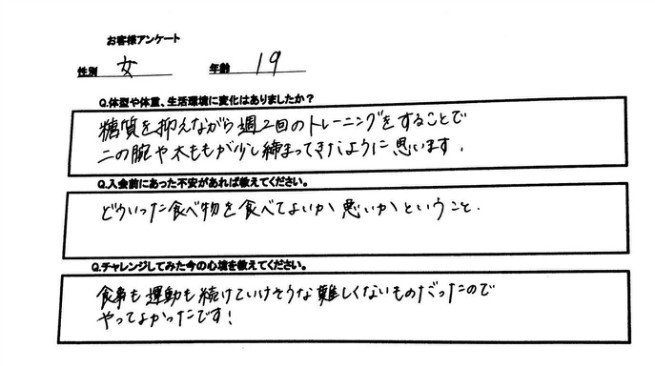 お客様アンケート
性別 女 年齢 19
Q.体型や体重、生活環境に変化はありましたか?
糖質を抑えながら週2回のトレーニングをすることで
二の腕や太ももが少し締まってきたように思います.
Q.入会前にあった不安があれば教えてください。
どういった食べ物を食べてよいか悪いかということ.
Q.チャレンジしてみた今の心境を教えてください。
食事も運動も続けていけそうな難しくないものだったので
やってよかったです!